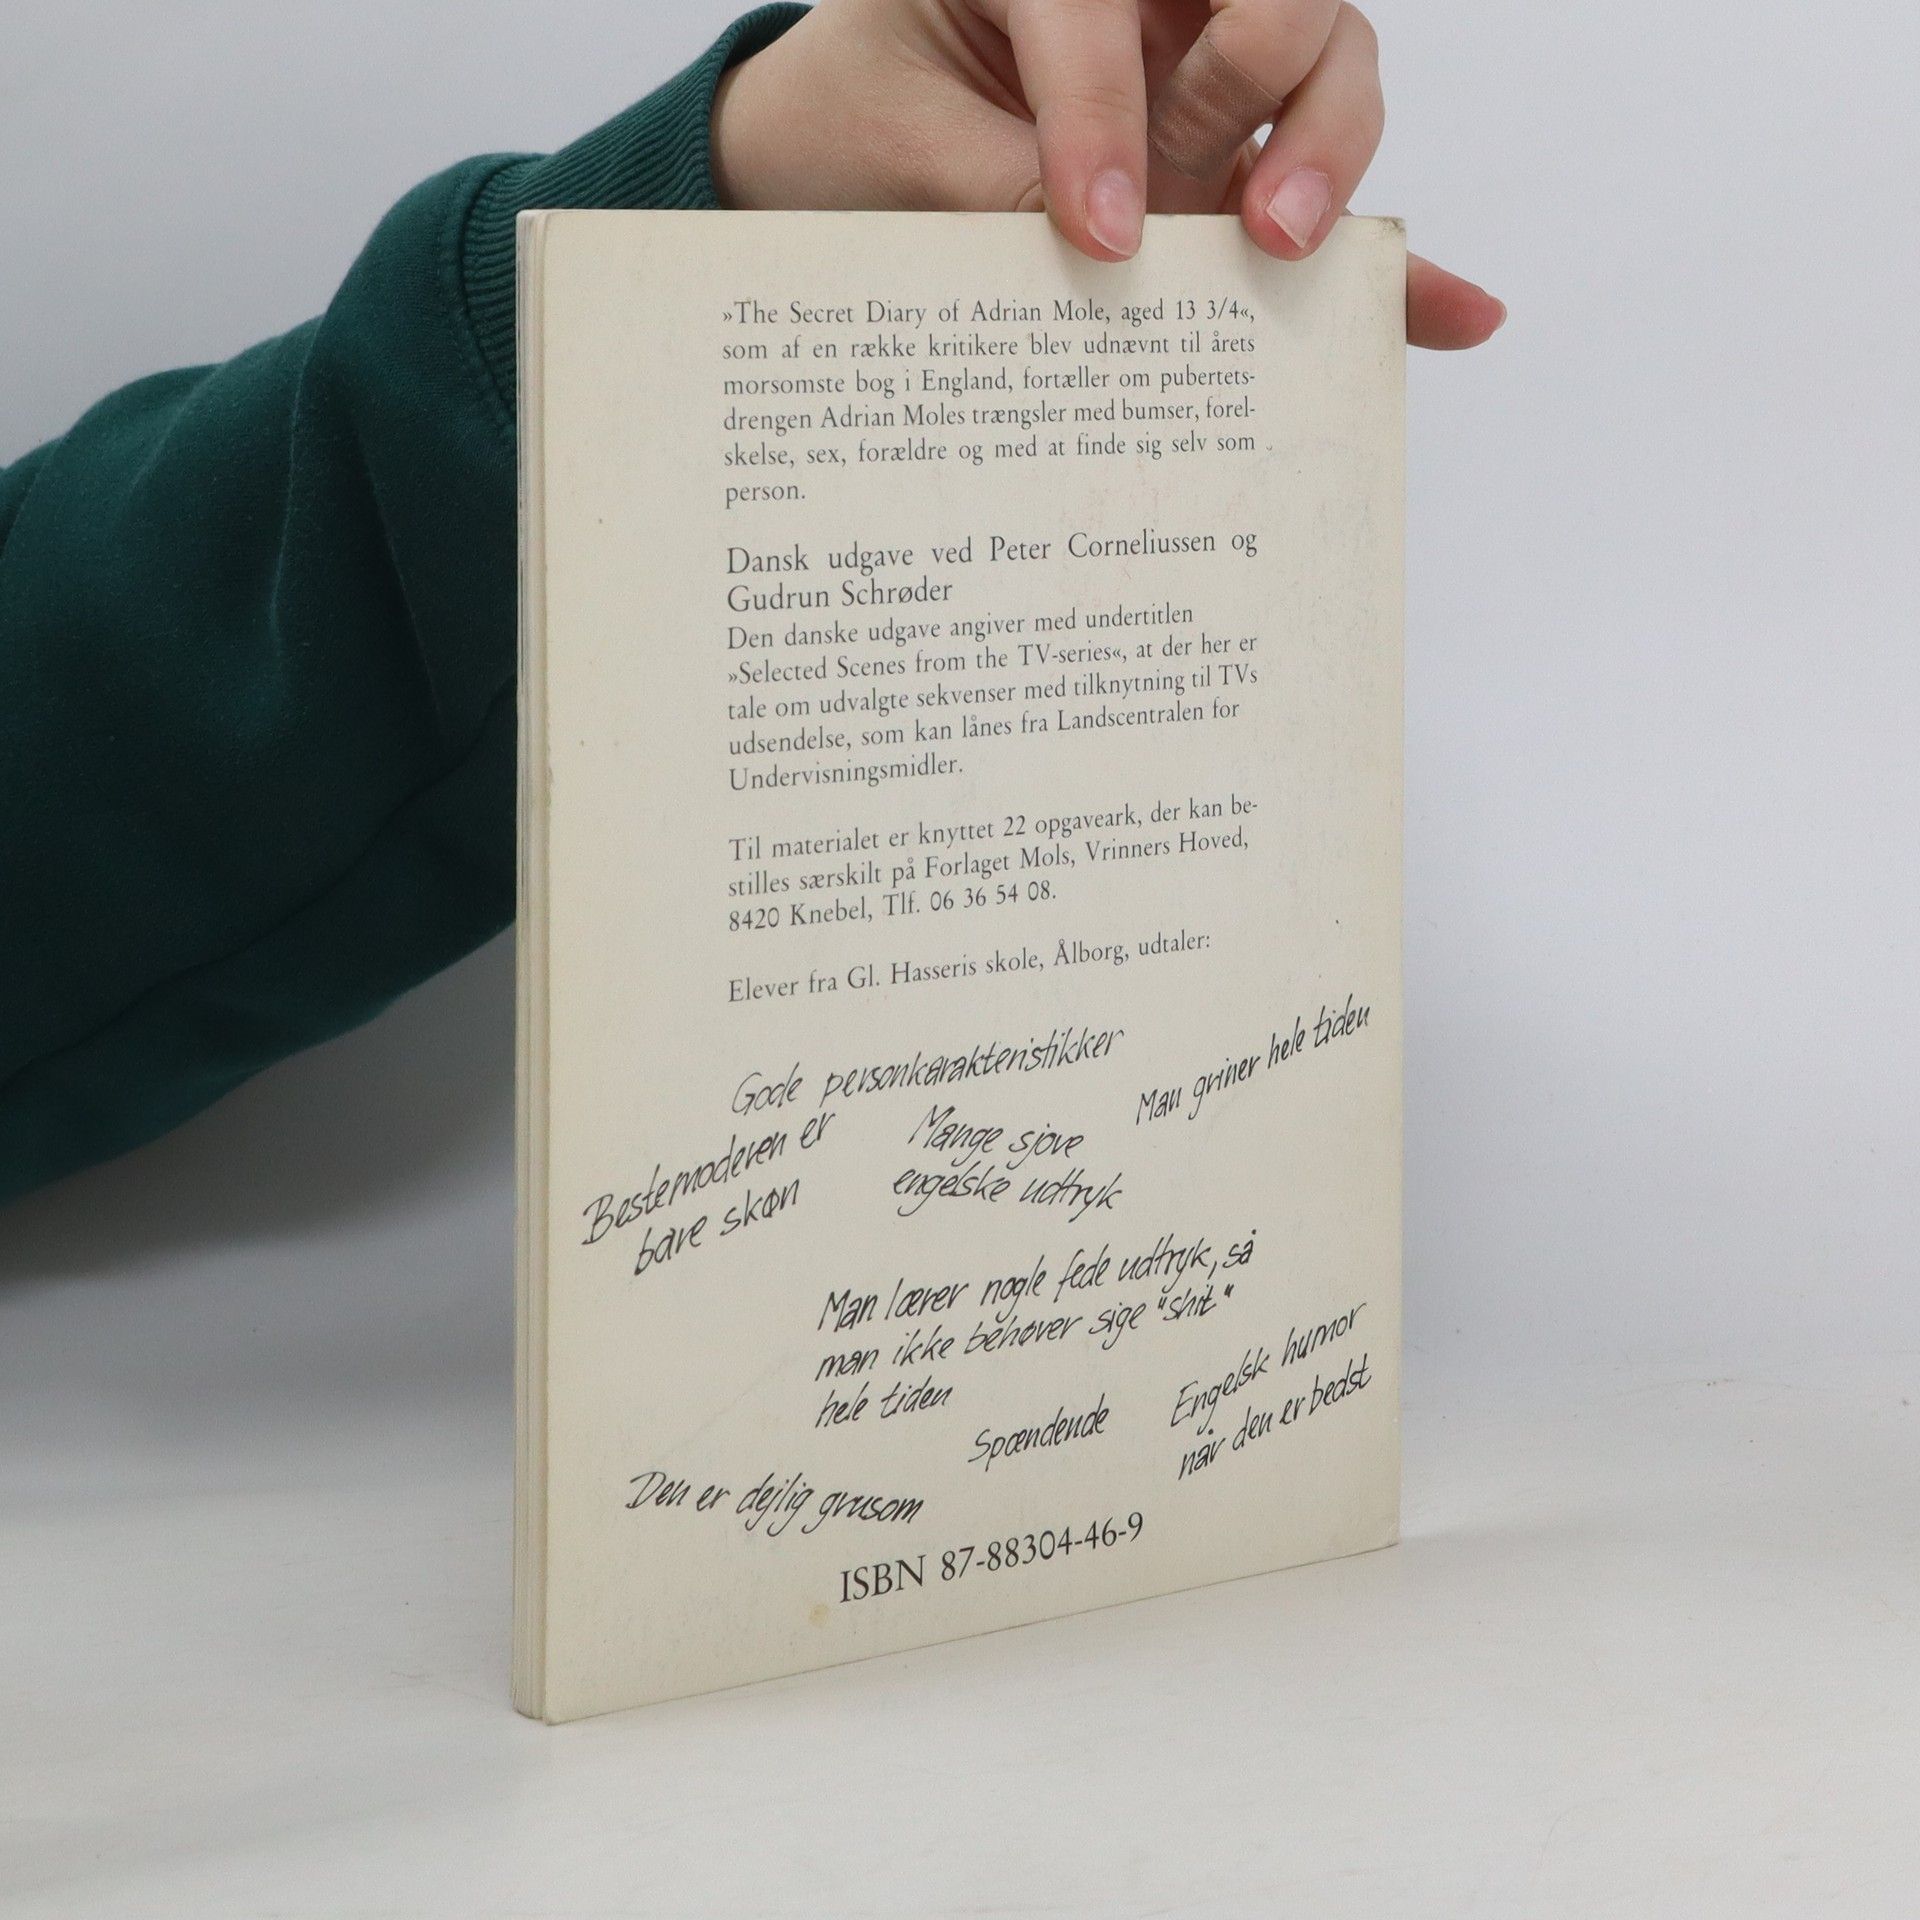 »The Secret Diary of Adrian Mole, aged 13 3/4«,
som af en række kritikere blev udnævnt til årets
morsomste bog i England, fortæller om pubertets-
drengen Adrian Moles trængsler med bumser, forel-
skelse, sex, forældre og med at finde sig selv som
person.
Dansk udgave ved Peter Corneliussen og
Gudrun Schrøder
Den danske udgave angiver med undertitlen
»Selected Scenes from the TV-series«, at der her er
tale om udvalgte sekvenser med tilknytning til TVs
udsendelse, som kan lånes fra Landscentralen for
Undervisningsmidler.
Til materialet er knyttet 22 opgaveark, der kan be-
stilles særskilt på Forlaget Mols, Vrinners Hoved,
8420 Knebel, Tlf. 06 36 54 08.
Elever fra Gl. Hasseris skole, Ålborg, udtaler:
Gode personkarakteristikker
Man griner hele tiden
Bestemoderen er
bare skøn
Mange sjove
engelske udtryk
Man lærer nogle fede udtryk, så
man ikke behøver sige "shit"
hele tiden
Spændende
Engelsk humor
når den er bedst
Den er dejlig grusom
ISBN 87-88304-46-9